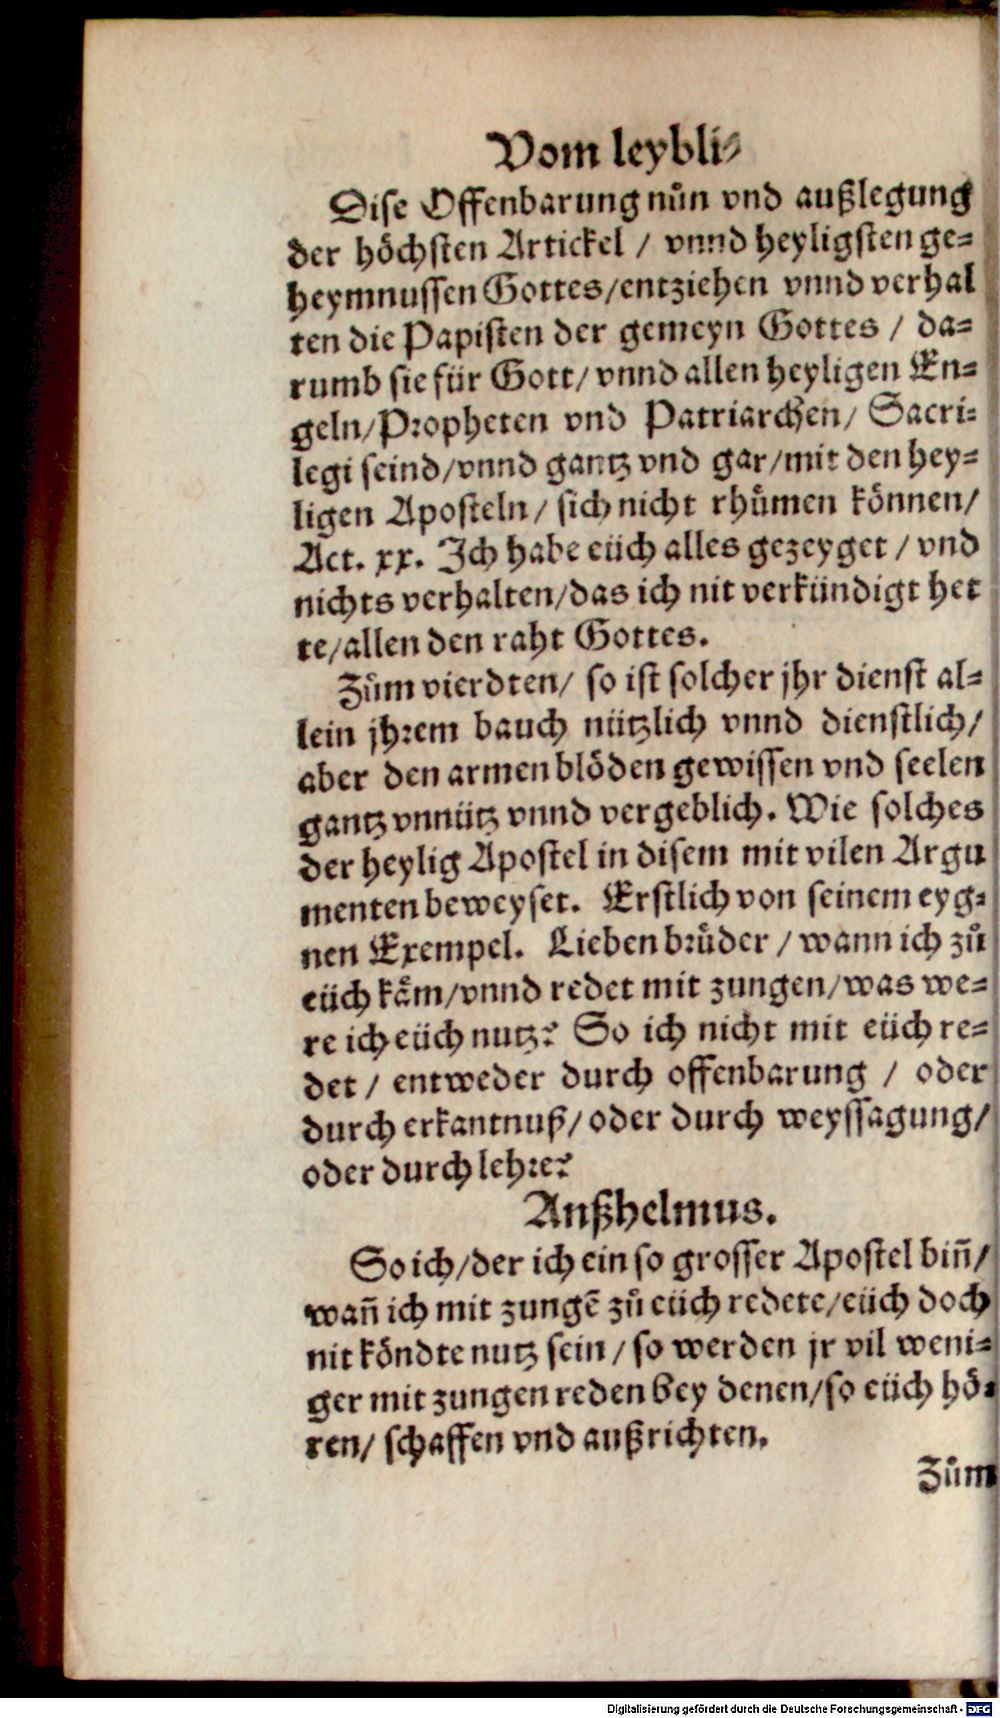 Vom leybli⸗
Dise Offenbarung nůn vnd außlegung
der höchsten Artickel / vnnd heyligsten ge=
heymnussen Gottes/entziehen vnnd verhal
ten die Papisten der gemeyn Gottes / da=
rumb sie für Gott/ vnnd allen heyligen En=
geln/Propheten vnd Patriarchen/ Sacri=
legi seind/vnnd gantz vnd gar/mit den hey=
ligen Aposteln/ sich nicht rhůmen können/
Act. xx. Ich habe eüch alles gezeyget / vnd
nichts verhalten/das ich nit verkündigt het
te/allen den raht Gottes.
Zům vierdten/ so ist solcher jhr dienst al=
lein jhrem bauch nützlich vnnd dienstlich/
aber den armen blöden gewissen vnd seelen
gantz vnnütz vnnd vergeblich. Wie solches
der heylig Apostel in disem mit vilen Argu
menten beweyset. Erstlich von seinem eyg=
nen Exempel. Lieben brůder / wann ich zů
eüch käm/vnnd redet mit zungen/was we=
re ich eüch nutz? So ich nicht mit eüch re=
det / entweder durch offenbarung / oder
durch erkantnuß/ oder durch weyssagung/
oder durch lehre?
Anßhelmus.
So ich/der ich ein so grosser Apostel biñ/
wañ ich mit zungẽ zů eüch redete/eüch doch
nit köndte nutz sein/ so werden jr vil weni=
ger mit zungen reden bey denen/so eüch hö=
ren/ schaffen vnd außrichten.
Zům
Digitalisierung gefördert durch die Deutsche Forschungsgemeinschaft - DFG